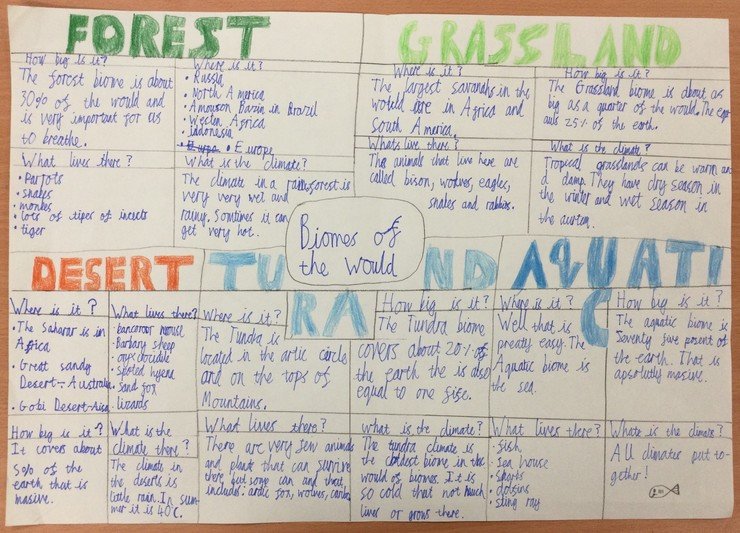 FOREST
How big is it?
The forest biome is about
30% of the would and
is very important for us
to breathe.
Where is it?
• Russia
• North America
• Amouson Bazin in Brazil
• Westen Africa
• Indonesia
• Europe
What lives there?
• Parjots
• snakes
• monkes
• lots of tipes of insects
• tiger
What is the climate?
The climate in a rainforest is
very very wet and
rainy. Somtimes it can
get very hot.
GRASSLAND
Where is it?
The largest savanahs in the
would are in Africa and
South America.
How big is it?
The Grassland biome is about as
big as a quarter of the would. The eqe
auls 25% of the earth.
Whats live there?
The animals that live here are
called bison, wolves, eagles,
snakes and rabbits.
What is the climate?
Tropical grasslands can be warm an
d damp. They have dry season in
the winter and wet season in
the
Biomes of
the would
DESERT
Where is it?
• The Saharar is in
Africa
• Great sandy
Desert-Australia
• Gobi Desert-Aisa
What lives there?
• bancarour mouse
• Barbary sheep
• oryx
• Spoted hyena
• Sand fox
• lizards
How big is it?
It covers about
of the
earth that is
masive.
What is the
climate there?
The climate in
the deserts is
little rain. In sum-
mer it is 40°C.
TUNDRA
Where is it?
The Tundra is
located in the artic circle
and on the tops of
Mountains.
How big is it?
The Tundra biome
covers about 20% of
the earth the is also
equal to one fife.
What lives there?
There are very few animals
and plants that can survive
there but some can and that
includes: artic fox, wolves,
what is the climate?
The tundra climate is
the coldest biome in the
would of biomes. It is
so cold that not much
lives or grows there.
AQUATIC
Where is it?
Well that is
preaty easy. The
Aquatic biome is
the sea.
How big is it?
The aquatic biome is
Seventy five pesent of
the earth. That is
apsolutly masive.
What lives there?
• fish
• Sea house
• Sharks
• dolfins
• sting ray
Whate is the climate?
All climates put to-
gether!